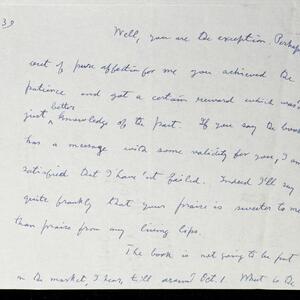 39
Well, you are the exception. Perhaps
out of pure affection for me you achieved the
patience and got a certain reward which was a
just better knowledge of the past. If you say the book
has a message with some validity for you, I am
satisfied that I have not failed. Indeed I'll say
quite frankly that your praise is sweeter to me
than praise from any living lips.
The book is not going to be put
on the market, I hear, till around Oct. 1. What is the